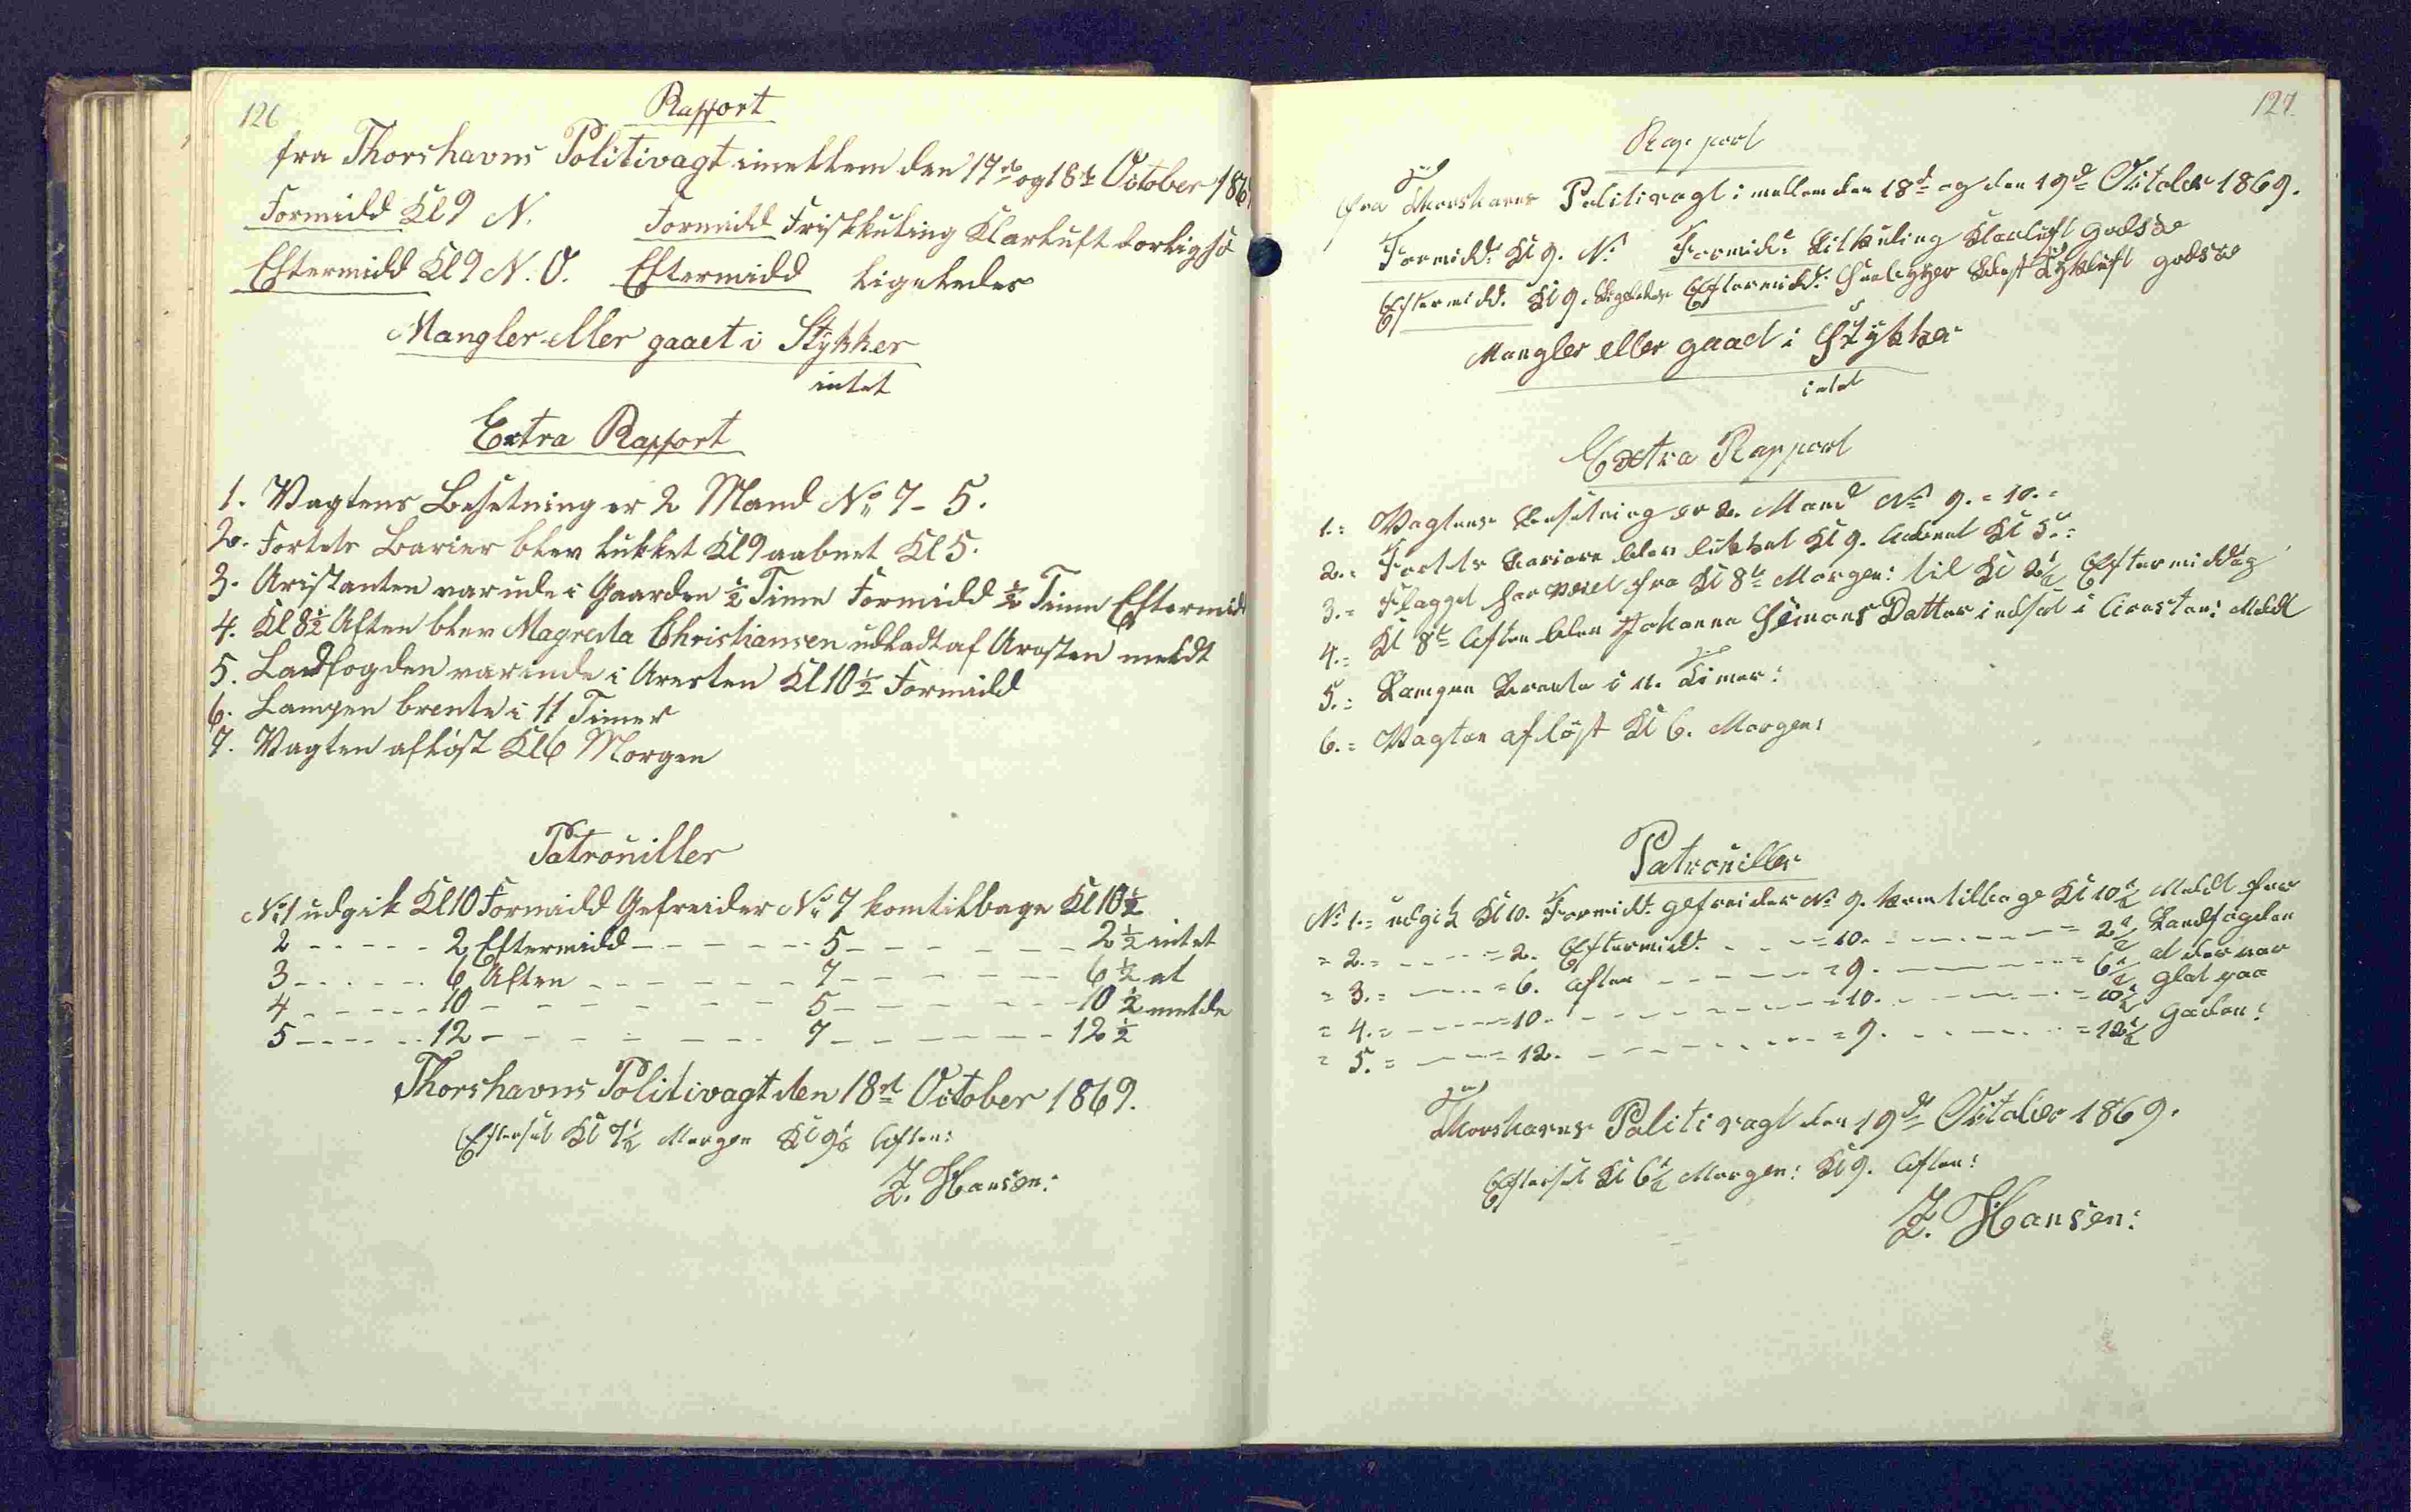 126
Rapport
fra Thorshavns Politivagt imellem den 17de og 18de October 1869
Formidd Kl 9 N. Formidd Friskkuling Klarluft dorligsö
Eftermidd Kl 9 N. O. Eftermidd ligeledes
Mangler eller gaaet i Stykker
intet
Extra Rapport
1. Vagtens Besetning er 2 Mand No 7 - 5.
2. Fortets Barier blev lukket Kl 9 aabnet Kl 5.
3. Aristanten var ude i Gaarden ½ Time Formidd ½ Time Eftermidd
4. Kl 8½ Aften blev Magreta Christiansen udladt af Aresten meldt
5. Ladfogden var inde i Aresten Kl 10½ Formidd
6. Lampen brente i 11 Timer
7. Vagten aflöst Kl 6 Morgen
Patrouiller
No 1 udgik Kl 10 Formidd Gefreider No 7 kom tilbage Kl 10½
2 - - - - - 2 Eftermidd - - - - - - 5 - - - - - - - 2½ intet
3 - - - - - 6 Aften - - - - - - 7 - - - - - - 6½ at
4 - - - - - 10 - - - - - - 5 - - - - - - 10½ melde
5 - - - - - 12 - - - - - - 7 - - - - - - 12½
Thorshavns Politivagt den 18de October 1869.
Efterset Kl 7½ Morgen Kl 9½ Aften:
Z. Hansen:
127.
Rapport
fra Thorshavns Politivagt imellem den 18de og den 19de October 1869.
Formidd: Kl 9. N: Formidd: Litkuling Klarluft godsö
Eftermidd. Kl 9. Ligeledes Eftermidd: Tykluft godsö
Mangler eller gaaet i Stykker
intet
Extra Rapport
1.= Vagtens Besetning er 2. Mand No 9. = 10. =
2.= Fortets Bariere blev lukket Kl 9. Aabnet Kl 5.=
3.= Flagget har veiet fra Kl 8te Morgen: til Kl 2½ Eftermiddag
4.= Kl 8te Aften blev Johanna Simons Datter indsat i Aresten: Meldt
5.= Lampen Brente i 11. Timer:
6.= Vagten aflöst Kl 6. Morgen:
Patrouiller
No 1.= udgik Kl 10. Formidd. gefreider No 9. kom tilbage Kl 10½ Meldt for
= 2.= - - - - = 2. Eftermidd. - - - = 10. - - - - - - = 2½ Landfogden
= 3.= - - - - = 6. Aften - - - - - = 9. - - - - - - = 6½ at der var
= 4.= - - - - = 10. - - - - - - - = 10. - - - - - - = 10½ glat paa
= 5.= - - - - = 12. - - - - - - - = 9. - - - - - - = 12½ Gaden:
Thorshavns Politivagt den 19de October 1869.
Efterset Kl 6½ Morgen: Kl 9. Aften:
Z. Hansen: